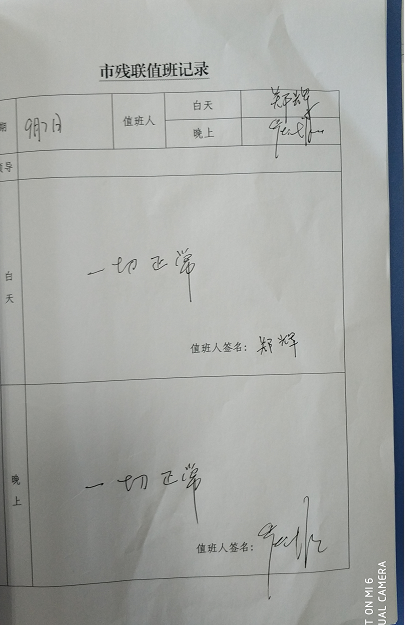 市残联值班记录
期 9月7日 值班人 白天 郑辉
晚上
领导
白天 一切正常
值班人签名: 郑辉
晚上 一切正常
值班人签名:
SHOT ON MI 6
DUAL CAMERA